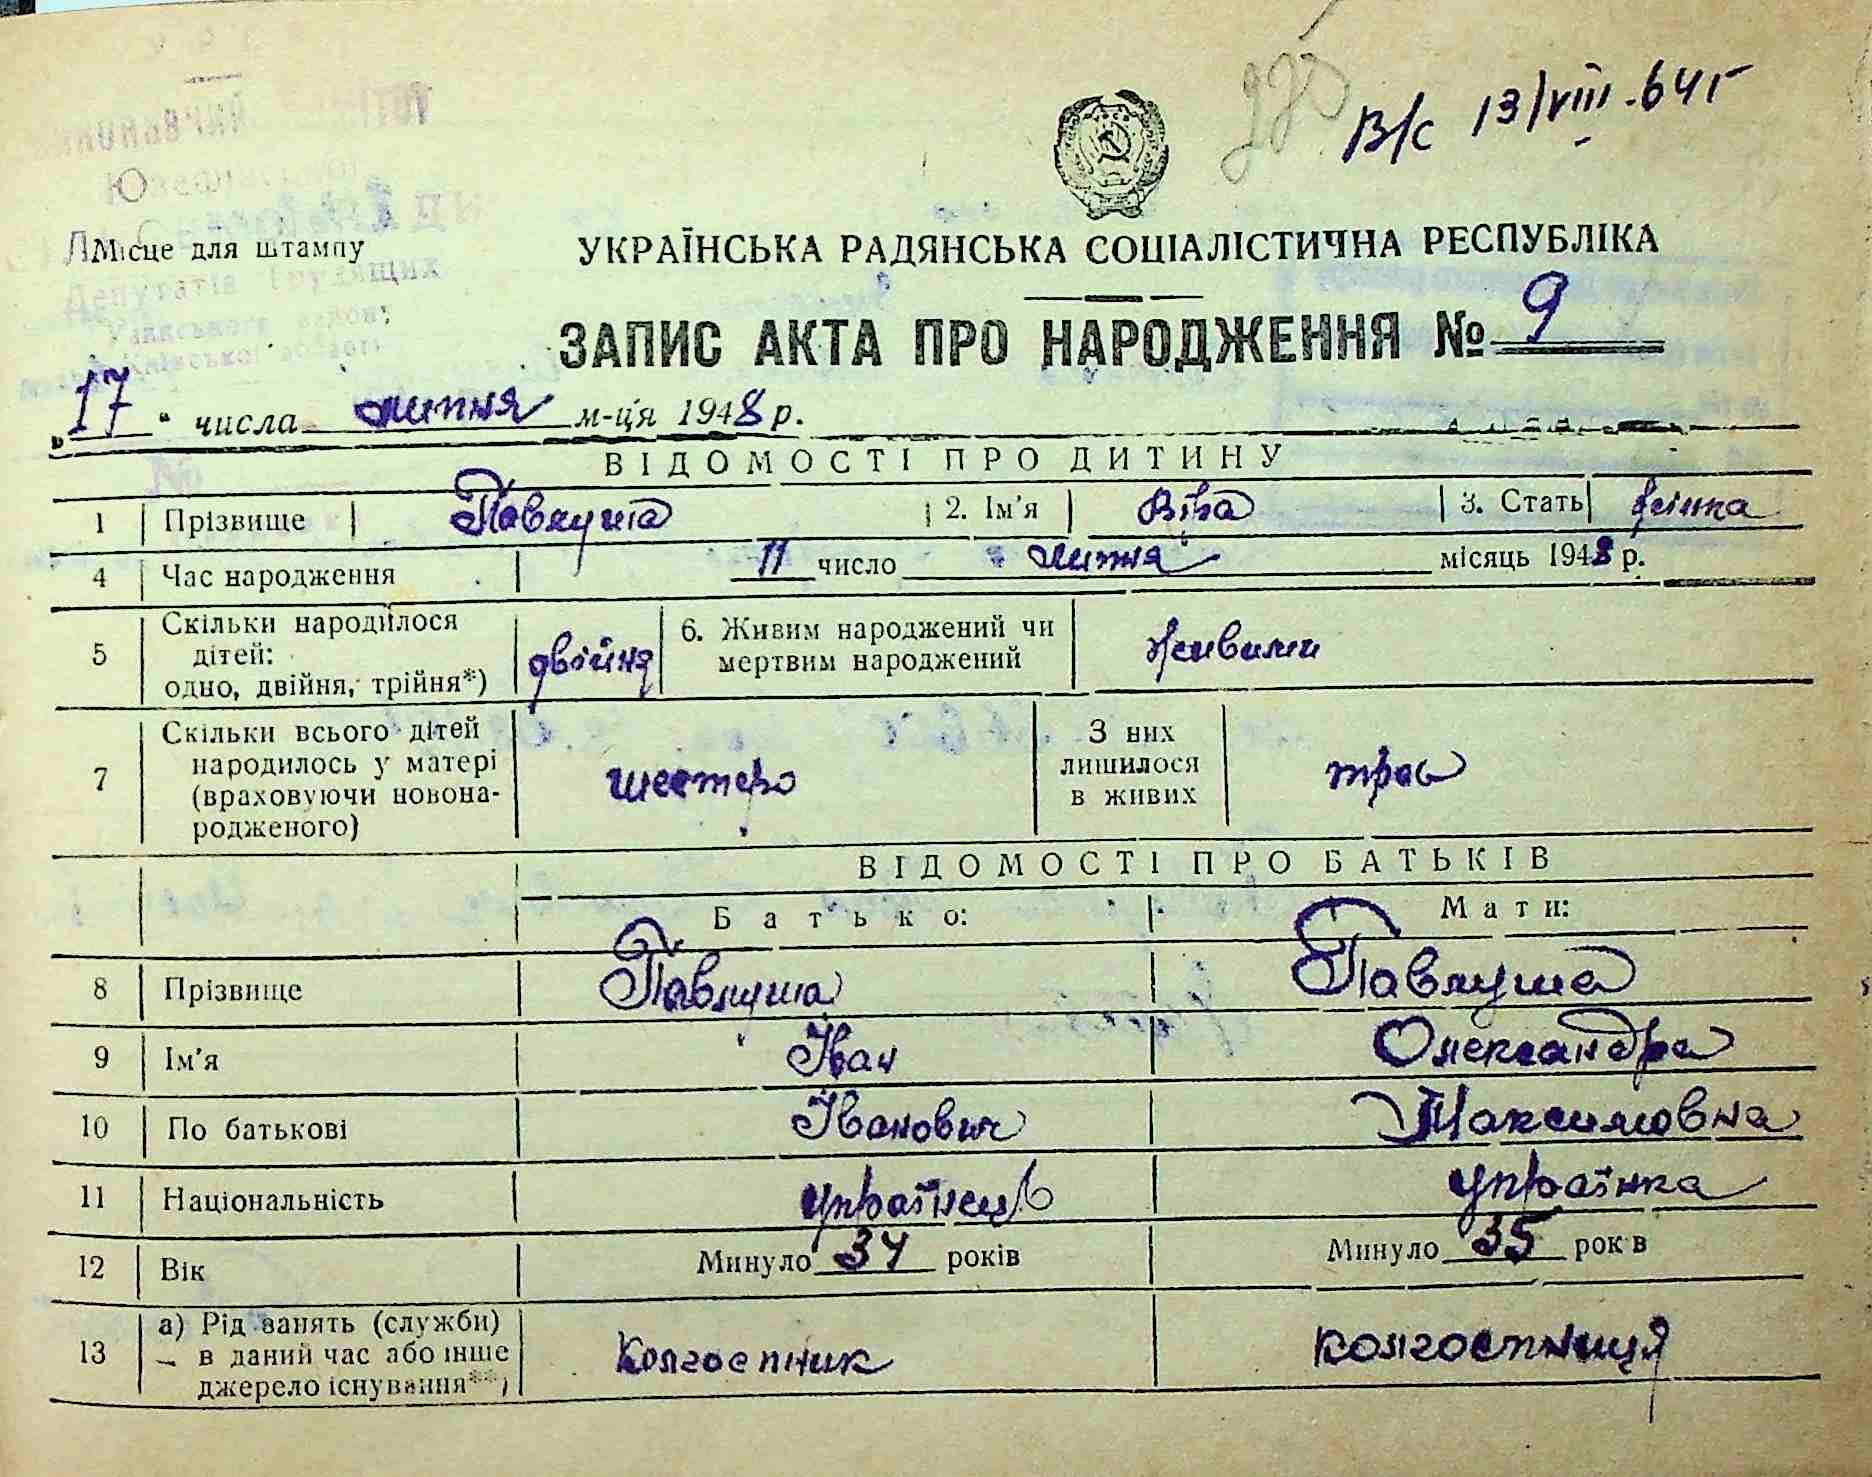 В/с 13/VIII.64г
Місце для штампу
УКРАЇНСЬКА РАДЯНСЬКА СОЦІАЛІСТИЧНА РЕСПУБЛІКА
ЗАПИС АКТА ПРО НАРОДЖЕННЯ № 9
„17“ числа липня м-ця 1948 р.
ВІДОМОСТІ ПРО ДИТИНУ
1 Прізвище Павлуша 2. Ім'я Віра 3. Стать жінка
4 Час народження 11 число липня місяць 1948 р.
5 Скільки народилося
дітей:
одно, двійня, трійня*) двійня 6. Живим народжений чи
мертвим народжений живими
7 Скільки всього дітей
народилось у матері
(враховуючи новона-
родженого) шестеро З них
лишилося
в живих троє
ВІДОМОСТІ ПРО БАТЬКІВ
Батько: Мати:
8 Прізвище Павлуша Павлуша
9 Ім'я Іван Олександра
10 По батькові Іванович Максимовна
11 Національність українець українка
12 Вік Минуло 34 років Минуло 35 рок в
13 а) Рід занять (служби)
в даний час або інше
джерело існування**) Колгоспник колгоспниця